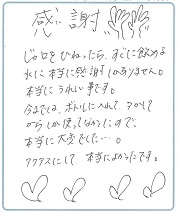 感謝
じゃ口をひねったら、すぐに飲める
水に本当に感謝しかありません。
本当にうれしい事です。
今までは、ボトルに入れて
から しか使ってなかったので、
本当に大変でした…。
アクアスにして 本当によかったです。